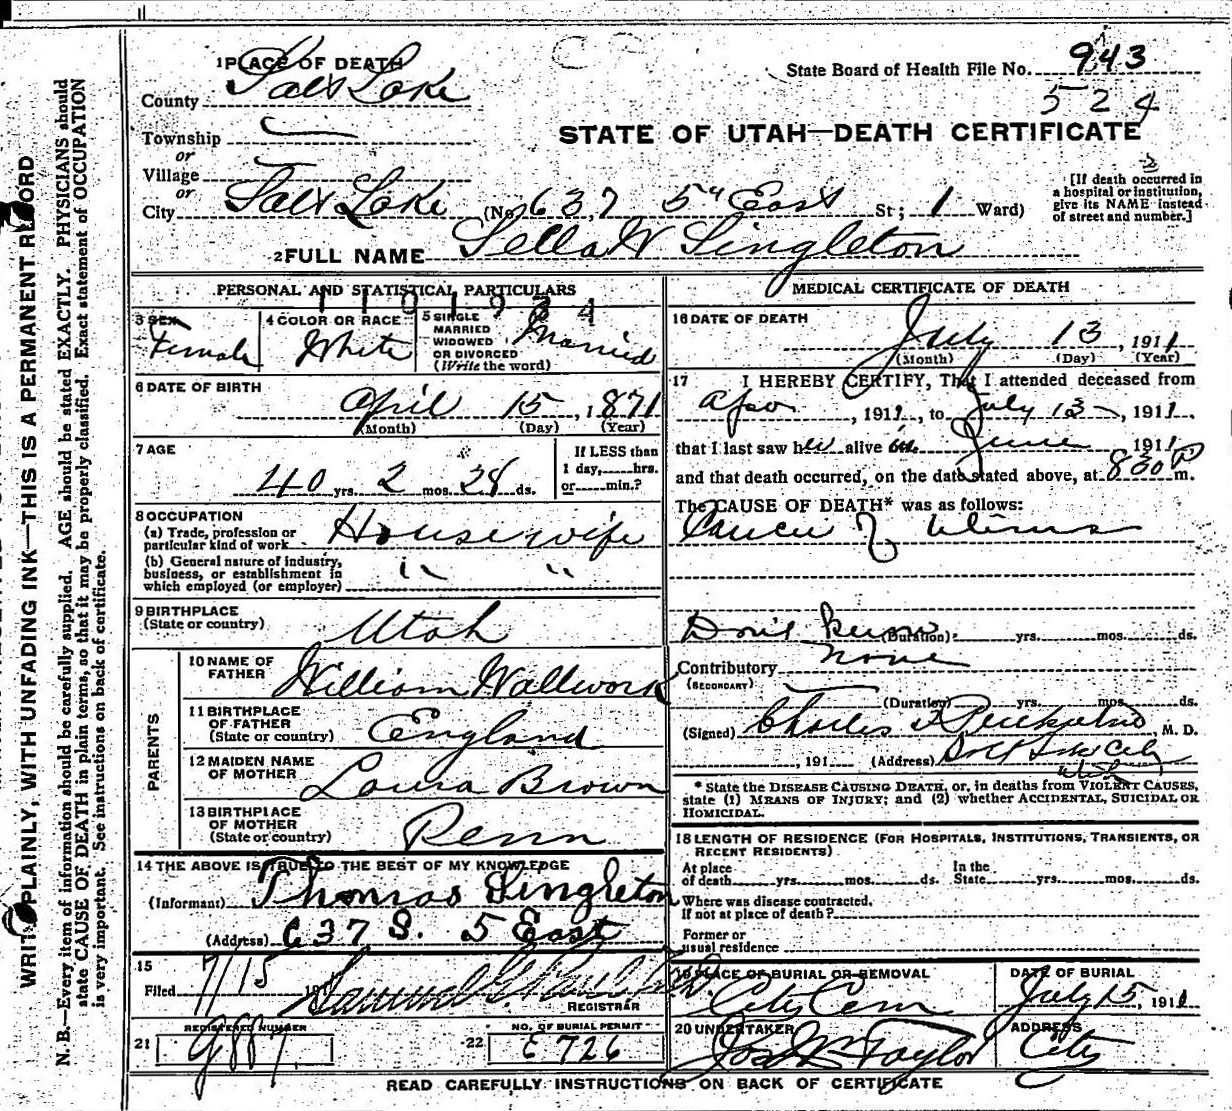 1 PLACE OF DEATH
County Salt Lake
Township
or
Village
or
City Salt Lake (No. 637 5" East St; 1 Ward)
State Board of Health File No. 943
524
STATE OF UTAH—DEATH CERTIFICATE
[If death occurred in
a hospital or institution,
give its NAME instead
of street and number.]
2 FULL NAME Lella W Singleton
PERSONAL AND STATISTICAL PARTICULARS
1101934
3 SEX
Female
4 COLOR OR RACE
White
5 SINGLE
MARRIED
WIDOWED
OR DIVORCED
(Write the word)
Married
6 DATE OF BIRTH
April 15, 1871
(Month) (Day) (Year)
7 AGE
40 yrs. 2 mos. 28 ds.
If LESS than
1 day, hrs.
or min.?
8 OCCUPATION
(a) Trade, profession or
particular kind of work Housewife
(b) General nature of industry,
business, or establishment in
which employed (or employer) " "
9 BIRTHPLACE
(State or country) Utah
PARENTS
10 NAME OF
FATHER William Wallwork
11 BIRTHPLACE
OF FATHER
(State or country) England
12 MAIDEN NAME
OF MOTHER Louisa Brown
13 BIRTHPLACE
OF MOTHER
(State or country) Penn
14 THE ABOVE IS TRUE TO THE BEST OF MY KNOWLEDGE
(Informant) Thomas Singleton
(Address) 637 S. 5 East
15
Filed 7/15 191 Samuel G.
REGISTRAR
21 REGISTERED NUMBER
9887
22 NO. OF BURIAL PERMIT
E 726
MEDICAL CERTIFICATE OF DEATH
16 DATE OF DEATH
July 13, 1911
(Month) (Day) (Year)
17 I HEREBY CERTIFY, That I attended deceased from
, 1911, to July 13, 1911,
that I last saw her alive in June 1911,
and that death occurred, on the date stated above, at 830 P m.
The CAUSE OF DEATH* was as follows:
Cancer of Uterus
Don't know (Duration) yrs. mos. ds.
Contributory none
(SECONDARY)
(Duration) yrs. mos. ds.
(Signed) Charles M. D.
, 191 (Address) Salt Lake City
Utah
* State the DISEASE CAUSING DEATH, or, in deaths from VIOLENT CAUSES,
state (1) MEANS OF INJURY; and (2) whether ACCIDENTAL, SUICIDAL OR
HOMICIDAL.
18 LENGTH OF RESIDENCE (FOR HOSPITALS, INSTITUTIONS, TRANSIENTS, OR
RECENT RESIDENTS)
At place
of death yrs. mos. ds.
In the
State yrs. mos. ds.
Where was disease contracted,
if not at place of death?
Former or
usual residence
19 PLACE OF BURIAL OR REMOVAL
City Cem
DATE OF BURIAL
July 15, 1911
20 UNDERTAKER
Jos Wm Taylor
ADDRESS
City
READ CAREFULLY INSTRUCTIONS ON BACK OF CERTIFICATE
WRITE PLAINLY, WITH UNFADING INK—THIS IS A PERMANENT RECORD
N. B.—Every item of information should be carefully supplied. AGE should be stated EXACTLY. PHYSICIANS should
state CAUSE OF DEATH in plain terms, so that it may be properly classified. Exact statement of OCCUPATION
is very important. See instructions on back of certificate.